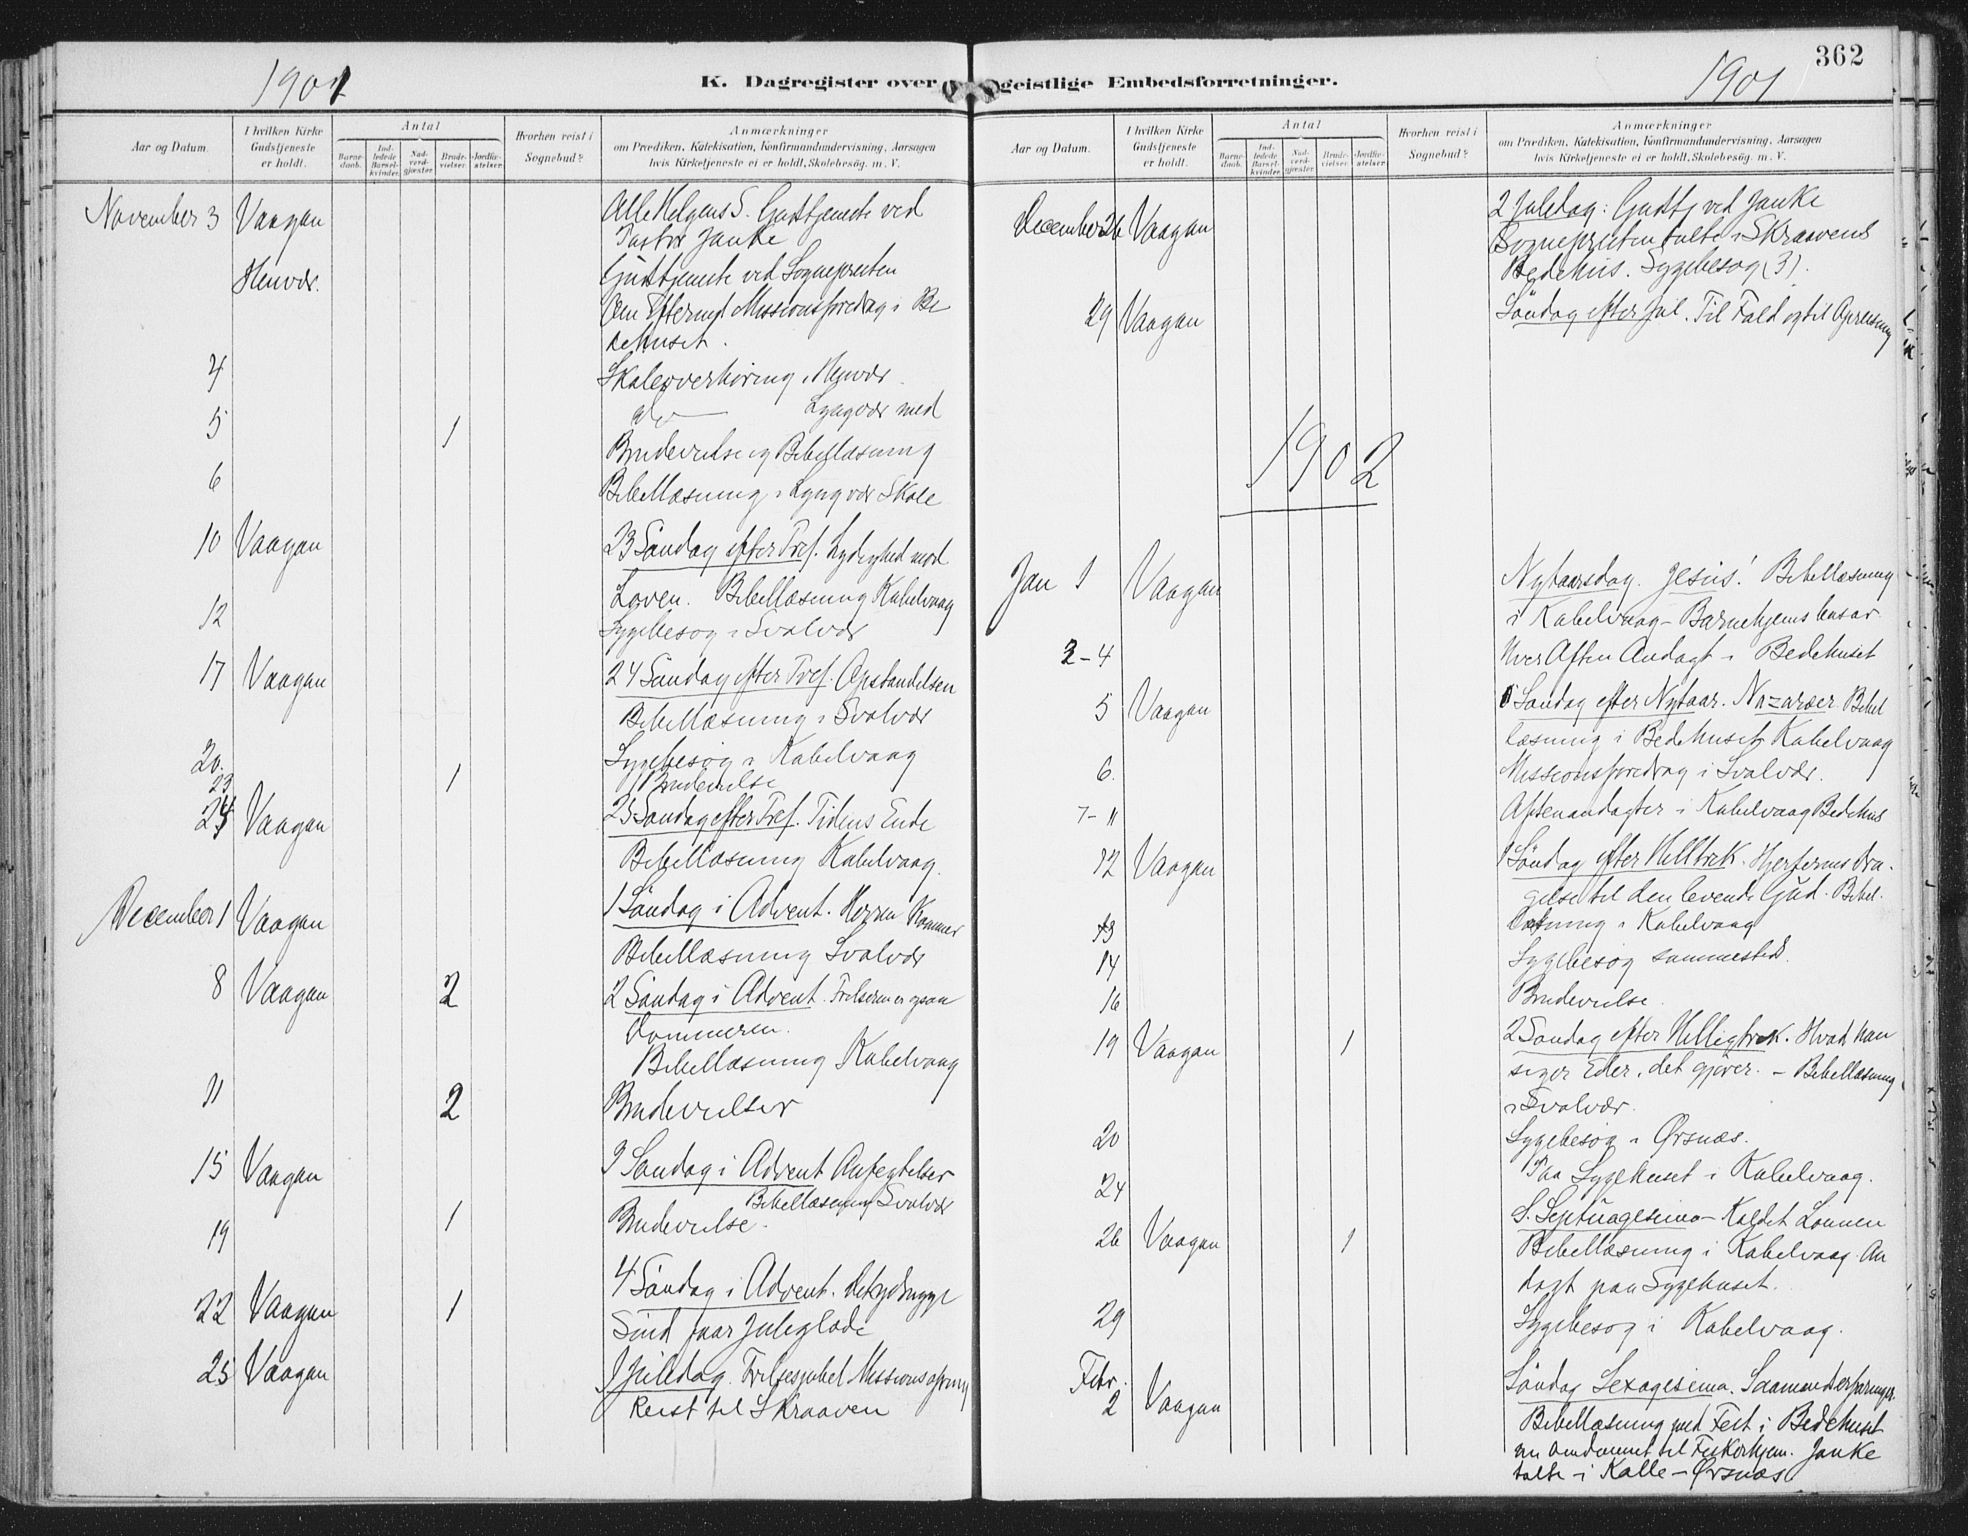 1901
K. Dagregister over
Aar og Datum.
I hvilken Kirke Gudstjeneste er holdt.
Antal
Barnedaab.
Indledede Barselkvinder.
Nadverdgjæster.
Brudevielser.
Jordfæstelser.
Hvorhen reist i Sognebud?
Anmærkninger
om Prædiken, Katekisation, Konfirmandundervisning, Aarsagen
hvis Kirketjeneste ei er holdt, Skolebesög. m. V.
November 3 Vaagan Alle Helgens S. Gudstjeneste ved
Pastor Janke
Henvær. Gudstjeneste ved Sognepresten
Om Efterm Missionsforedrag i Be
dehuset.
4 Skoleoverhöring i Henvær
5 1 do Lyngvær med
Brudevielse og Bibellæsning
6 Bibellæsning i Lyngvær Skole
10 Vaagan 23 Söndag efter Tref. Lydighed mod
Loven. Bibellæsning Kabelvaag
12 Sygebesög i Svolvær
17 Vaagan 24 Söndag efter Tref. Opstandelsen
Bibellæsning i Svolvær
20. Sygebesög i Kabelvaag
23 1 Brudevielse
24 Vaagan 25 Söndag efter Tref. Tidens Ende
Bibellæsning Kabelvaag.
December 1 Vaagan 1 Söndag i Advent. Herren Kommer
Bibellæsning Svolvær
8 Vaagan 2 2 Söndag i Advent. Frelseren er ogsaa
Dommeren.
Bibellæsning Kabelvaag
11 2 Brudevielser
15 Vaagan 3 Söndag i Advent Anfegtelser
Bibellæsning Svolvær
19 1 Brudevielse.
22 Vaagan 1 4 Söndag i Advent.
Sind faar Juleglæde
25 Vaagan 1 Juledag. Frelsesjubel Missionsofring
Reist til Skraaven
362
1901
geistlige Embedsforretninger.
Aar og Datum.
I hvilken Kirke Gudstjeneste er holdt.
Antal
Barnedaab.
Indledede Barselkvinder.
Nadverdgjæster.
Brudevielser.
Jordfæstelser.
Hvorhen reist i Sognebud?
Anmærkninger
om Prædiken, Katekisation, Konfirmandundervisning, Aarsagen
hvis Kirketjeneste ei er holdt, Skolebesög. m. V.
December 26 Vaagan 2 Juledag: Gudstj ved Janke
Sognepresten talte i Skraavens
Bedehus. Sygebesög (3).
29 Vaagan Söndag efter Jul. Til Fald og til Opreisning
1902
Jan 1 Vaagan Nytaarsdag. Jesus! Bibellæsning
i Kabelvaag – Barnehjems basar
2–4 Hver Aften Andagt i Bedehuset
5 Vaagan Söndag efter Nytaar. Nazaræer. Bibel
læsning i Bedehuset Kabelvaag
6. Missionsforedrag i Svolvær.
7–11 Aftenandagter i Kabelvaag Bedehus
12 Vaagan 1 Söndag efter Helltrek. Hjerternes Dra
gelse til den levende Gud. Bibel.
13 læsning i Kabelvaag
14 Sygebesög sammested.
16 Brudevielse.
19 Vaagan 1 2 Söndag efter Helligtrek. Hvad han
siger Eder, det gjører. – Bibellæsning
i Svolvær.
20 Sygebesög i Ørsnæs.
24 Paa Sygehuset i Kabelvaag.
26 Vaagan 1 S. Septuagesima – Kaldet Lönnen
Bibellæsning i Kabelvaag. An
dagt paa Sygehuset.
29 Sygebesög i Kabelvaag.
Febr.
2 Vaagan Söndag Sexagesima. Saamandserfaringer.
Bibellæsning med Fest i Bedehuset
nu omdannet til Fiskerhjem. Janke
talte i Kalle – Ørsnæs